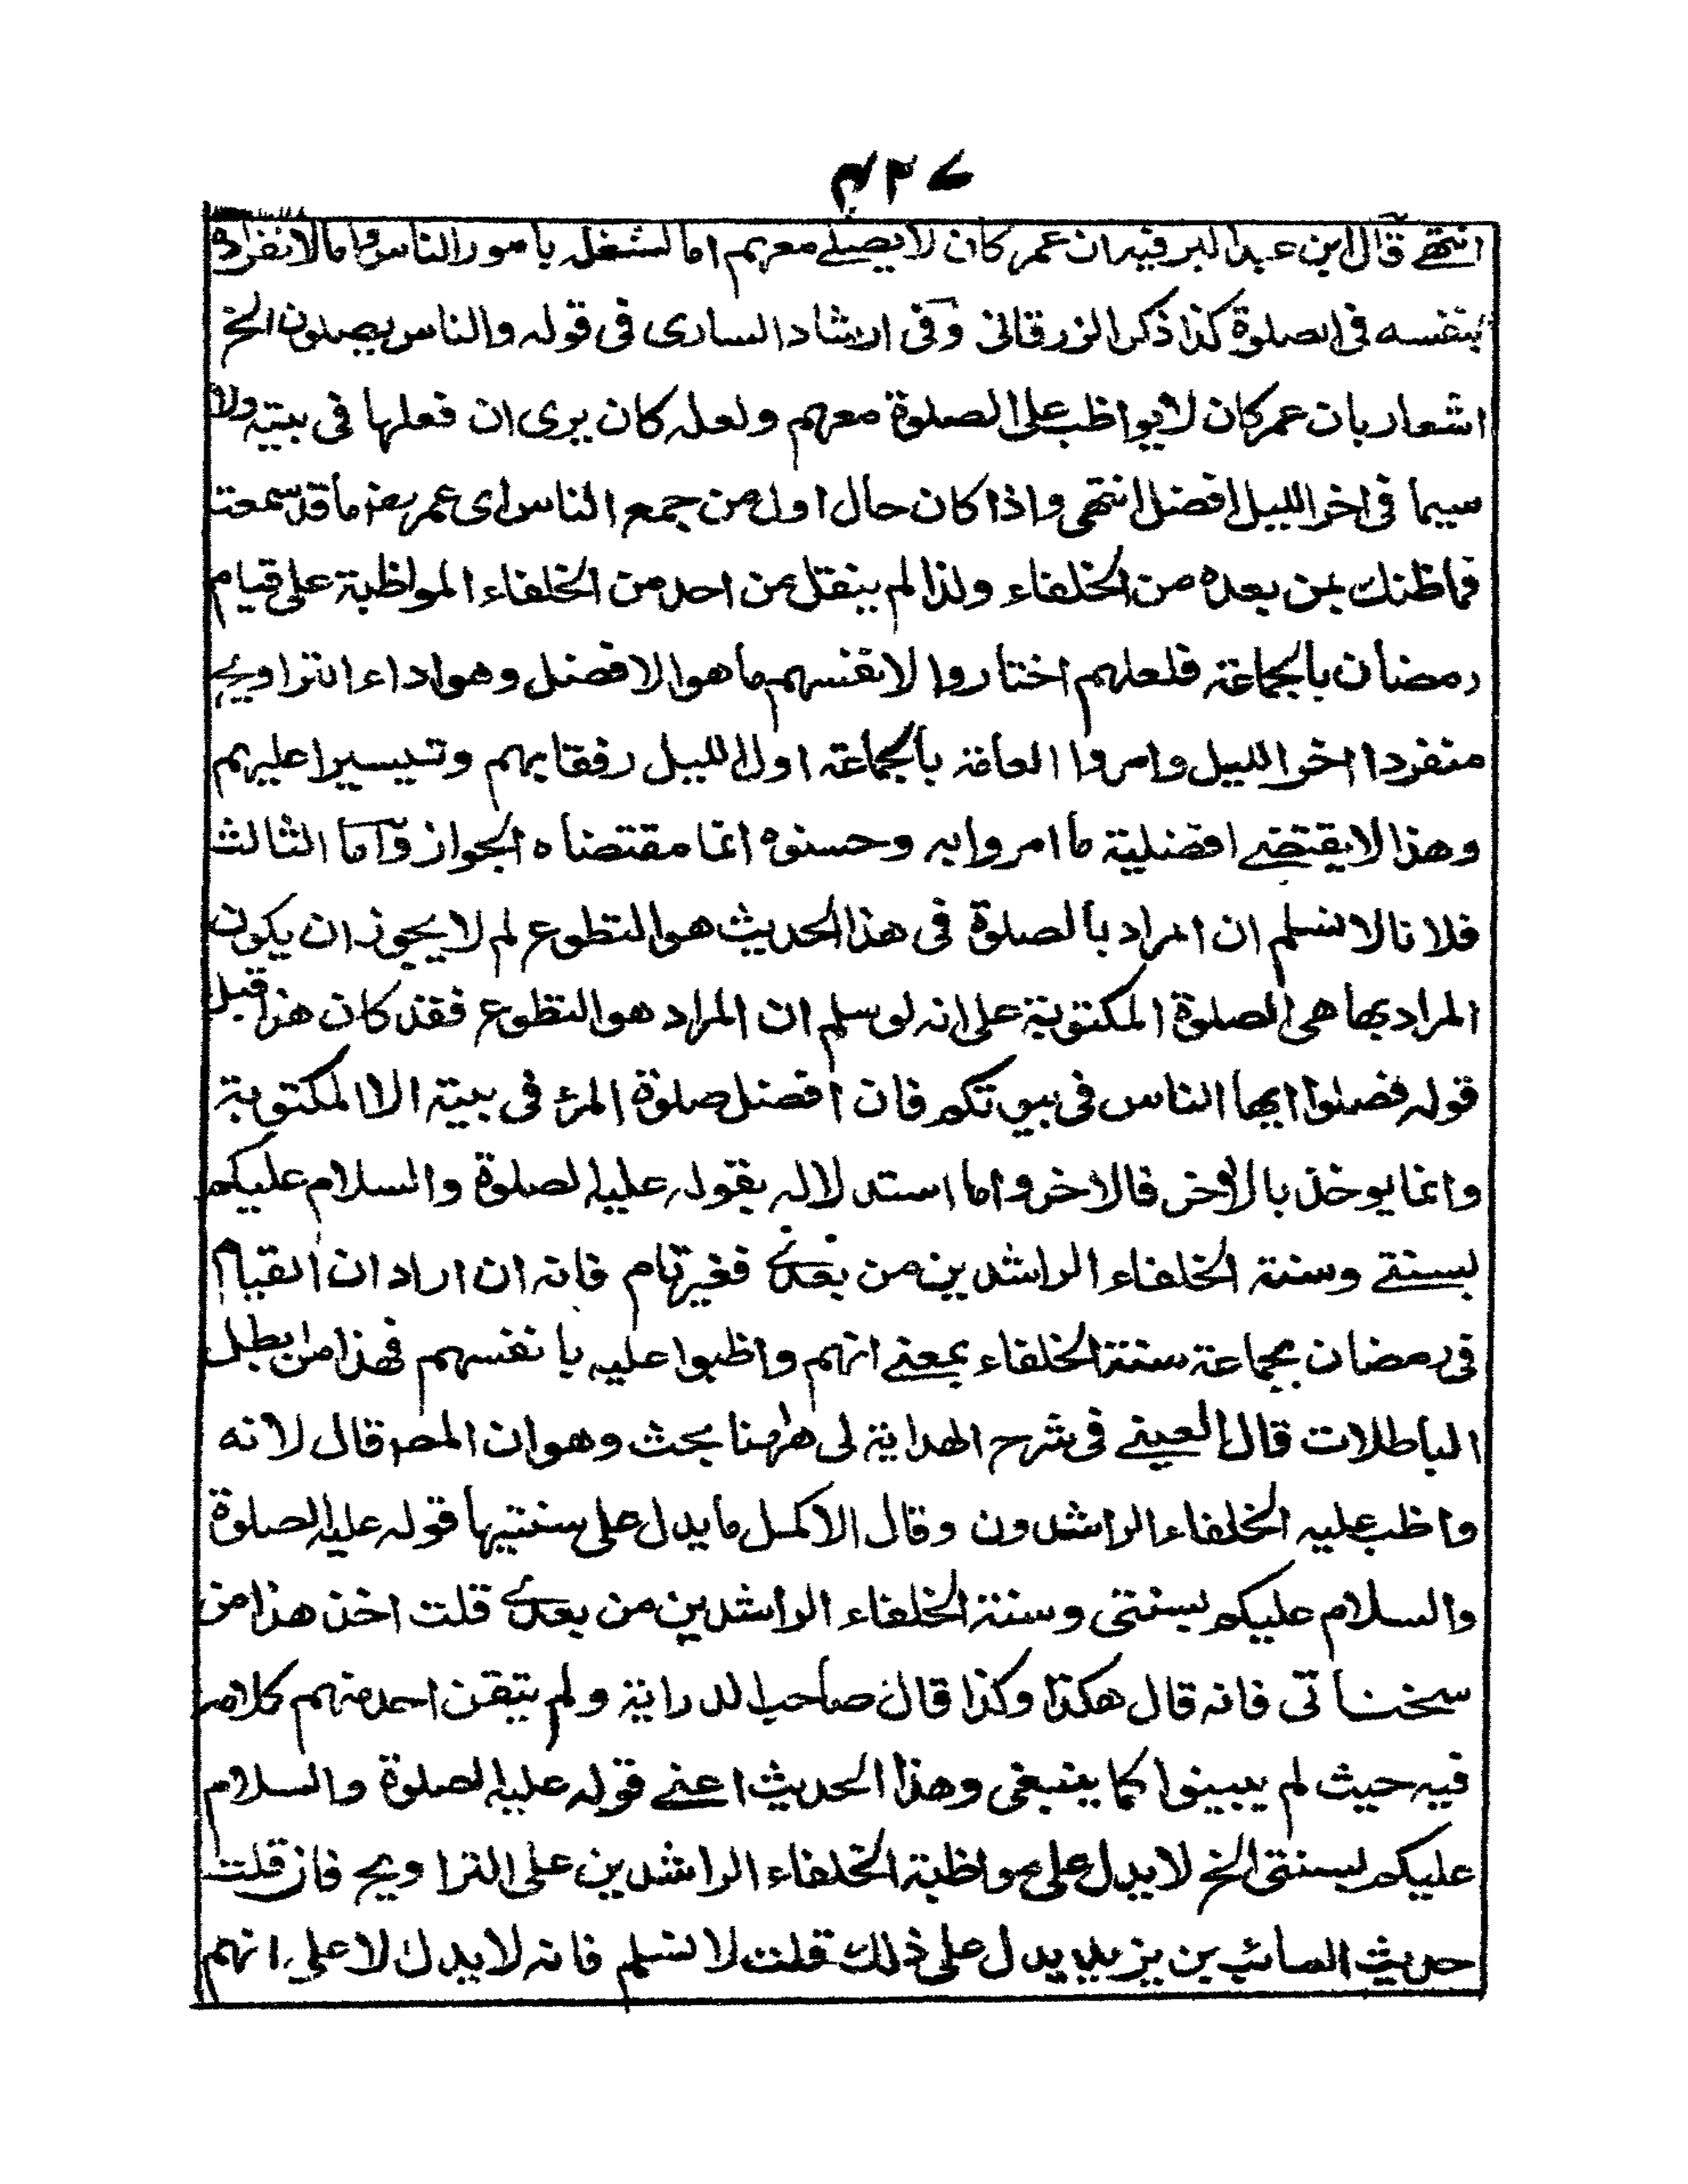 ۴۲۷
انتهے قال ابن عبد البر فیہ ان عمر کان لا یصلے معہم اما لشغلہ بامور الناس واما لانفرادہ
بنفسہ فی الصلوۃ کذا ذکر الزرقانی وفی ارشاد الساری فی قولہ والناس یصلون الخ
اشعار بان عمر کان لا یواظب علی الصلوۃ معہم ولعلہ کان یری ان فعلہا فی بیتہ ولا
سیما فی اخر اللیل افضل انتهی واذا کان حال اول من جمع الناس ای عمر بعد ما قد سمعت
فما ظنک بمن بعدہ من الخلفاء ولذا لم ینقل عن احد من الخلفاء المواظبۃ علی قیام
رمضان بالجماعۃ فلعلہم اختاروا لانفسہم ما هو الافضل وهو اداء التراویح
منفردا اخر اللیل وامروا العامۃ بالجماعۃ اول اللیل رفقا بہم وتیسیرا علیہم
وهذا لا یقتضے افضلیۃ ما امروا بہ وحسنوہ انما مقتضاہ الجواز واما الثالث
فلانا لا نسلم ان المراد بالصلوۃ فی هذا الحدیث هو التطوع لم لا یجوز ان یکون
المراد بها هی الصلوۃ المکتوبۃ علی انہ لو سلم ان المراد هو التطوع فقد کان هذا قبل
قولہ فصلوا ایها الناس فی بیوتکم فان افضل صلوۃ المرء فی بیتہ الا المکتوبۃ
وانما یوخذ بالاخر فالاخر واما استدلالہ بقولہ علیہ الصلوۃ والسلام علیکم
بسنتے وسنۃ الخلفاء الراشدین من بعدے فغیر تام فانہ ان اراد ان القیام
فی رمضان بجماعۃ سنۃ الخلفاء بمعنے انہم واظبوا علیہ بانفسہم فهذا من ابطل
الباطلات قال العینے فی شرح الهدایۃ لی هٰہنا بحث وهو ان المصـ قال لانه
واظب علیہ الخلفاء الراشدون وقال الاکمل ما یدل علی سنتیہا قولہ علیہ الصلوۃ
والسلام علیکم بسنتی وسنۃ الخلفاء الراشدین من بعدے قلت اخذ هذا من
سخناتی فانہ قال هکذا وکذا قال صاحب الدرایۃ ولم یتقن احد منہم کلامہ
فیہ حیث لم یبینوا کما ینبغی وهذا الحدیث اعنے قولہ علیہ الصلوۃ والسلام
علیکم بسنتی الخ لا یدل علی مواظبۃ الخلفاء الراشدین علی التراویح فان قلت
حدیث السائب بن یزید یدل علی ذلک قلت لا نسلم فانہ لا یدل لا علی انہم